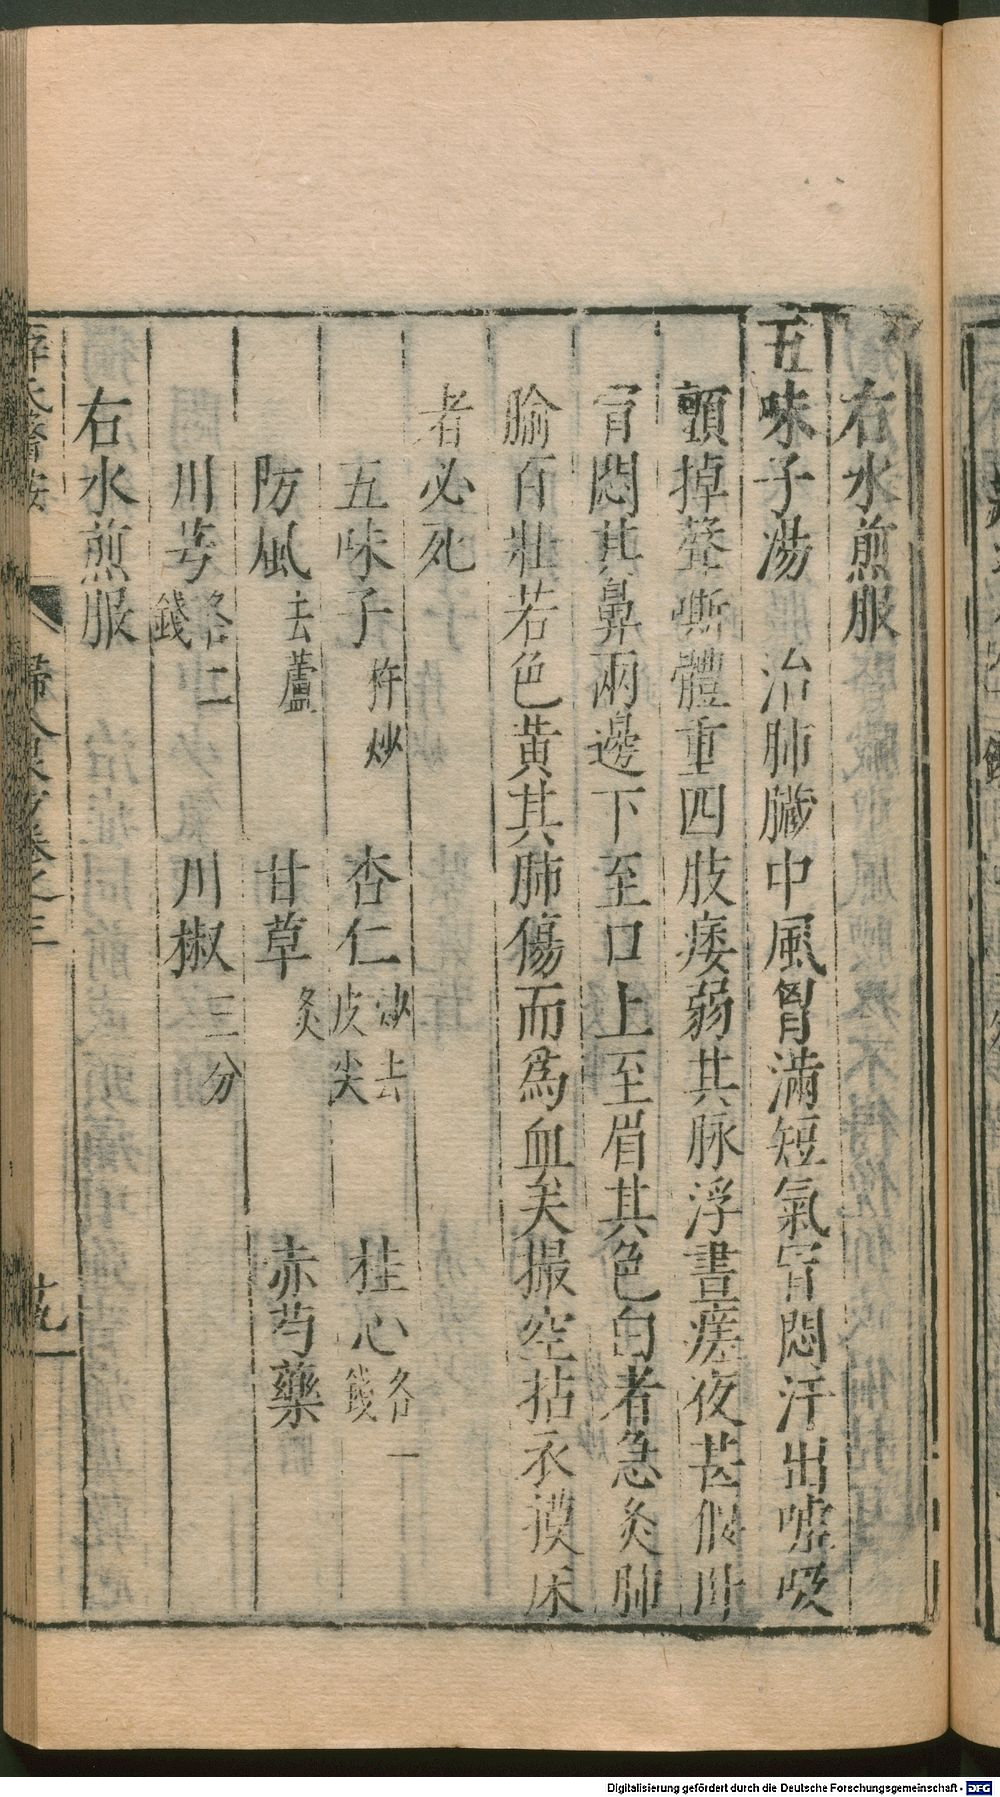 右水煎服
五味子湯　治肺臟中風胷滿短氣冒悶汗出噓吸
顫掉聲嘶體重四肢痿弱其脉浮晝瘥夜甚偃卧
冒悶其鼻兩邊下至口上至眉其色白者急灸肺
腧百壯若色黄其肺傷而爲血矣撮空拈衣摸床
者必死
五味子杵炒　杏仁炒去皮尖　桂心各一錢
防風去蘆　甘草炙　赤芍藥
川芎各二錢　川椒三分
右水煎服
薛氏醫按　婦人良方卷之三
Digitalisierung gefördert durch die Deutsche Forschungsgemeinschaft - DFG